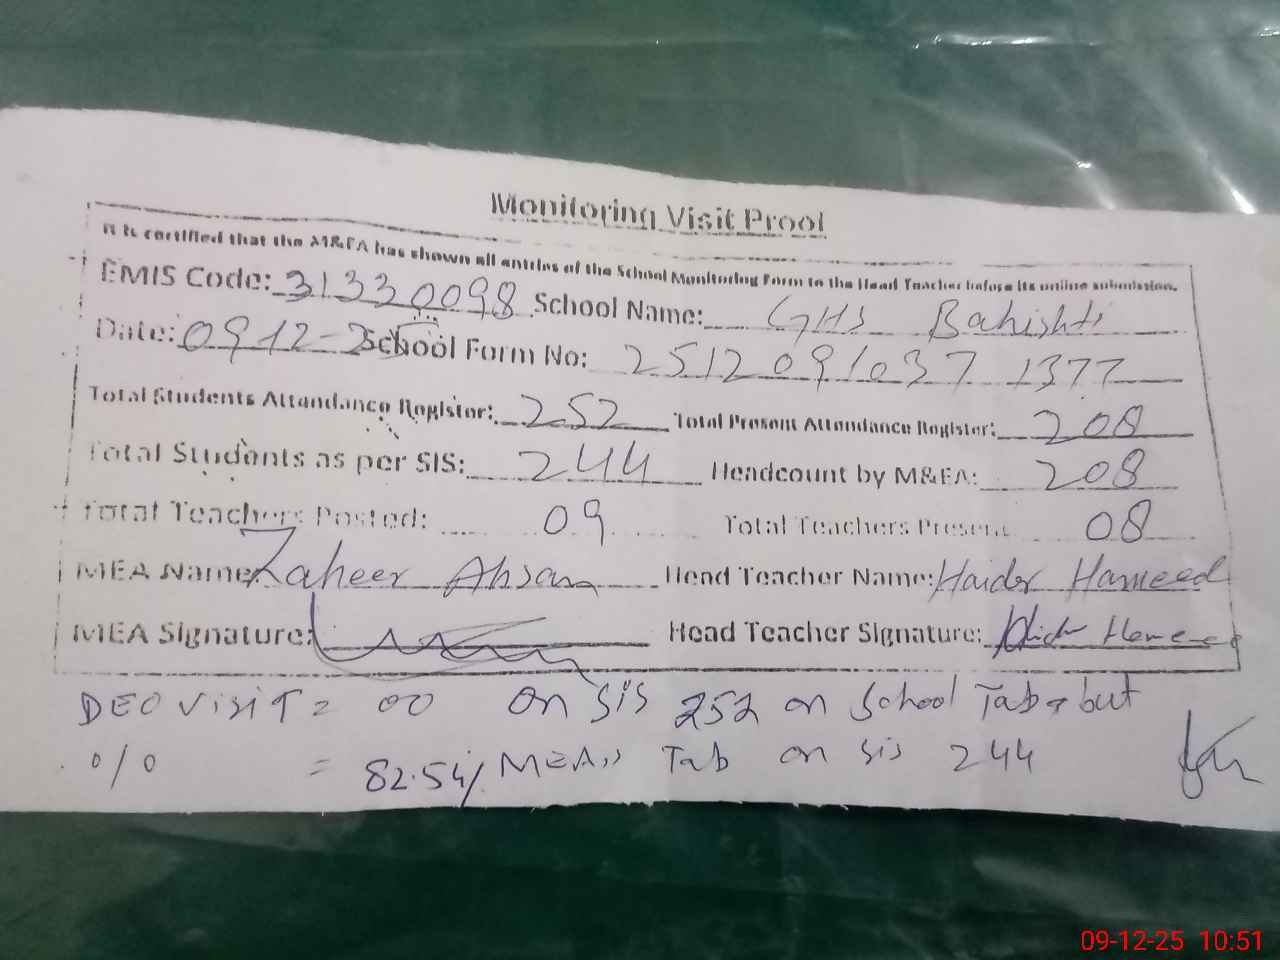 Monitoring Visit Proof
It is certified that the M&EA has shown all entries of the School Monitoring Form to the Head Teacher before its online submission.
EMIS Code: 31330098 School Name: GHS Bahishti
Date: 09 12-25 School Form No: 25120910371377
Total Students Attandance Register: 252 Total Present Attendance Register: 208
Total Students as per SIS: 244 Headcount by M&EA: 208
Total Teachers Posted: 09 Total Teachers Present: 08
MEA Name: Zaheer Ahsan Head Teacher Name: Haider Hameed
MEA Signature: Head Teacher Signature: Haider Hameed
DEO visit = 00 on SIS 252 on School Tab but
0/0 = 82.54% MEA,, Tab on sis 244
09-12-25 10:51